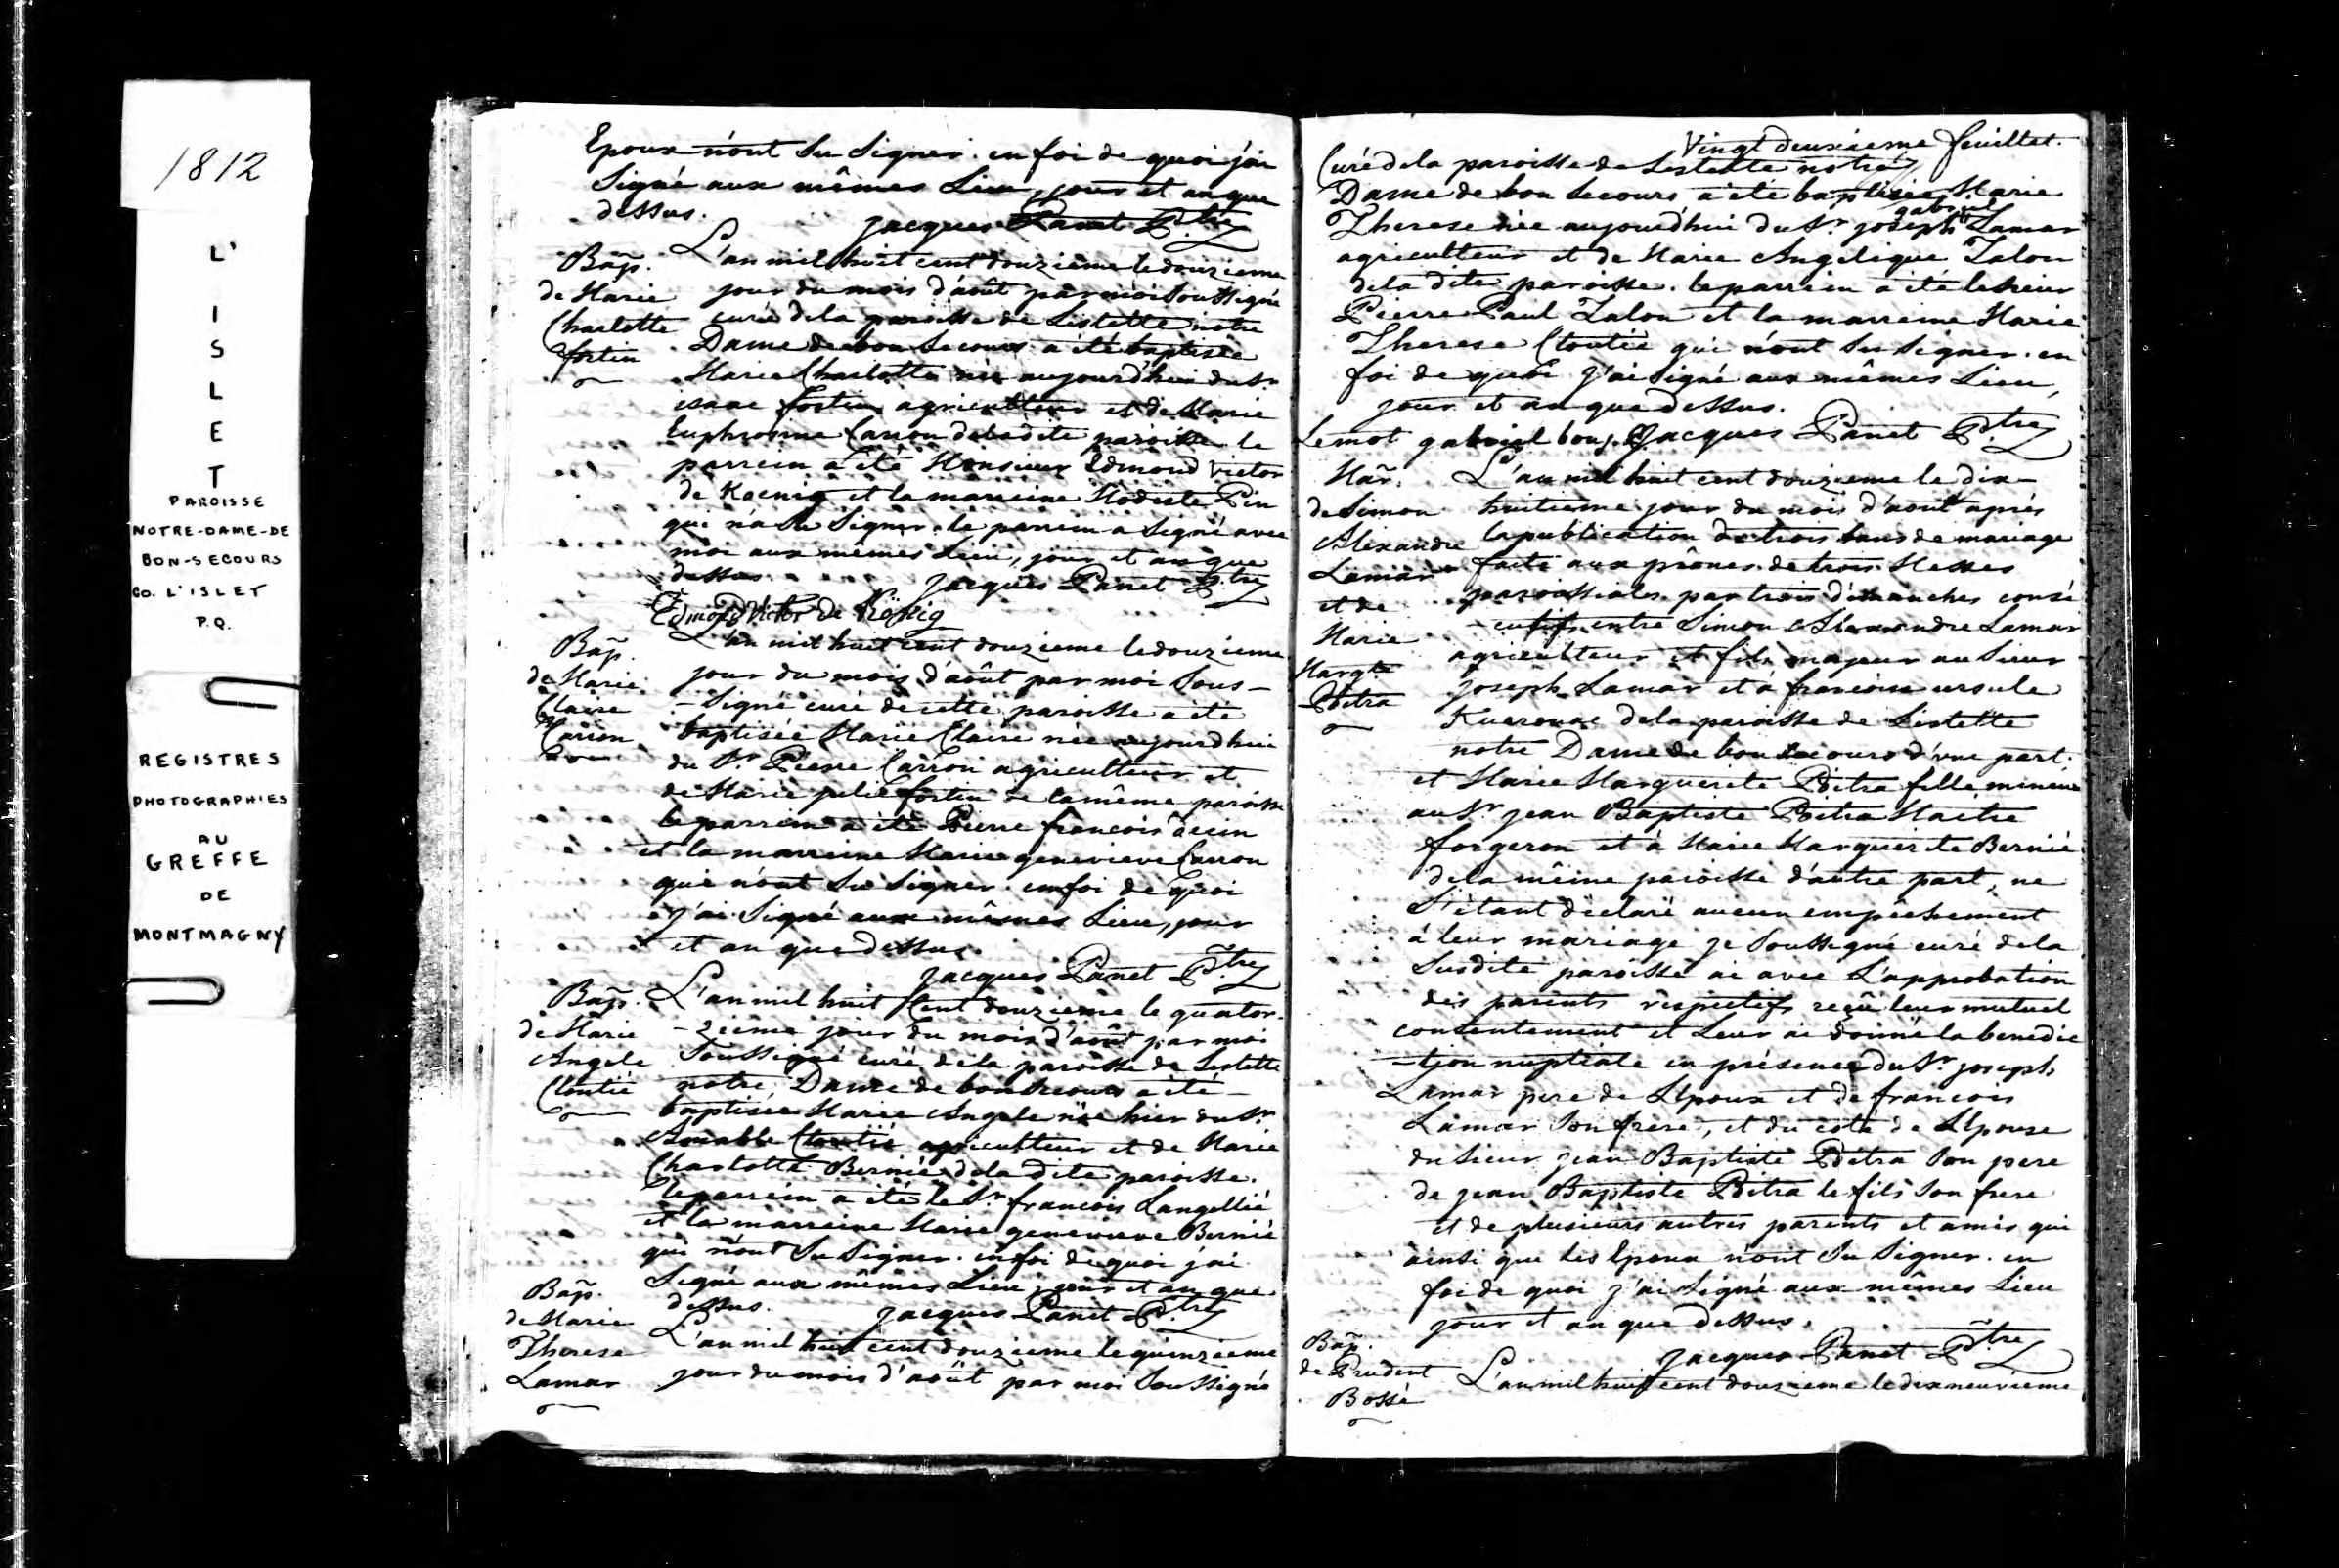 1812
L'
I
S
L
E
T
PAROISSE
NOTRE-DAME-DE
BON-SECOURS
CO. L'ISLET
P.Q.
REGISTRES
PHOTOGRAPHIES
AU
GREFFE
DE
MONTMAGNY
Epoux n'ont su signer. en foi de quoi j'ai
signé aux mêmes Lieu, jour et an que
dessus.
Jacques Panet Ptre
Bap.
de Marie
Charlotte
fortin
L'an mil huit cent douzième le douzieme
jour du mois d'août par moi soussigné
curé de la paroisse de Lislette notre
Dame de bon secours a été baptisée
Marie Charlotte née aujourd'hui du Sr
isaac fortin agriculteur et de Marie
Euphrosine Carron de la dite paroisse le
parrein a été Monsieur Edmond victor
de Koenig et la marreine Modeste Pin
qui n'a su signer. le parrein a signé avec
moi aux mêmes Lieu, jour et an que
dessus. Jacques Panet Ptre
Edmond Victor de Köenig
Bap.
de Marie
Claire
Carron
L'an mil huit cent douzieme le douzieme
jour du mois d'août par moi Sous-
-signé curé de cette paroisse a été
baptisée Marie Claire née aujourdhui
du Sr Pierre Carron agriculteur et
de Marie julie fortin de la même paroisse
le parrein a été Pierre francois
et la marreine Marie genevieve Carron
qui n'ont su signer. en foi de quoi
j'ai signé aux mêmes Lieu, jour
et an que dessus.
Jacques Panet Ptre
Bap.
de Marie
Angele
Cloutié
L'an mil huit Cent douzieme le quator-
-zième jour du mois d'août par moi
soussigné curé de la paroisse de Lislette
notre Dame de bon secours a été
baptisée Marie Angele née hier du Sr
Amable Cloutié agriculteur et de Marie
Charlotte Bernié de la dite paroisse.
le parrein a été le Sr francois Langellié
et la marreine Marie genevieve Bernié
qui n'ont su signer. en foi de quoi j'ai
signé aux mêmes Lieu, jour et an que
dessus. Jacques Panet Ptre
Bap.
de Marie
Therese
Lamar
L'an mil huit cent douzieme le quinzieme
jour du mois d'août par moi soussigné
Vingt deuxieme feuillet.
Curé de la paroisse de Lislette notre
Dame de bon secours a été baptisée Marie
gabriel
Therese née aujourd'hui du Sr joseph Lamar
agriculteur et de Marie Angelique Talon
de la dite paroisse. le parrein a été le sieur
Pierre Paul Talon et la marreine Marie
Therese Cloutié qui n'ont su signer. en
foi de quoi j'ai signé aux mêmes Lieu,
jour et an que dessus.
Le mot gabriel bon j.P. Jacques Panet Ptre
Mar.
de Simon
Alexandre
Lamar
et de
Marie
Margte
Pitra
L'an mil huit cent douzieme le dix-
huitieme jour du mois d'août après
la publication de trois bans de mariage
faite aux prônes de trois Messes
paroissiales par trois dimanches consé
-cutifs entre Simon Alexandre Lamar
agriculteur et fils majeur au Sieur
joseph Lamar et à francoise ursule
Kuerouac de la paroisse de Lislette
notre Dame de bon secours d'une part.
et Marie Marguerite Pitra fille mineure
au Sr jean Baptiste Pitra Maitre
forgeron et à Marie Marguerite Bernié
de la même paroisse d'autre part, ne
s'étant déclaré aucun empêchement
à leur mariage je soussigné curé de la
susdite paroisse ai avec L'approbation
des parents respectifs reçû leur mutuel
consentement et Leur ai donné la benedic
-tion nuptiale en présence du Sr joseph
Lamar pere de Lepoux et de francois
Lamar son frere, et du coté de Lepouse
du sieur jean Baptiste Pitra son pere
de jean Baptiste Pitra le fils son frere
et de plusieurs autres parents et amis qui
ainsi que les Epoux n'ont su signer. en
foi de quoi j'ai signé aux mêmes Lieu
jour et an que dessus.
Jacques Panet Ptre
Bap.
de Prudent
Bossé
L'an mil huit cent douzieme le dixneuvieme